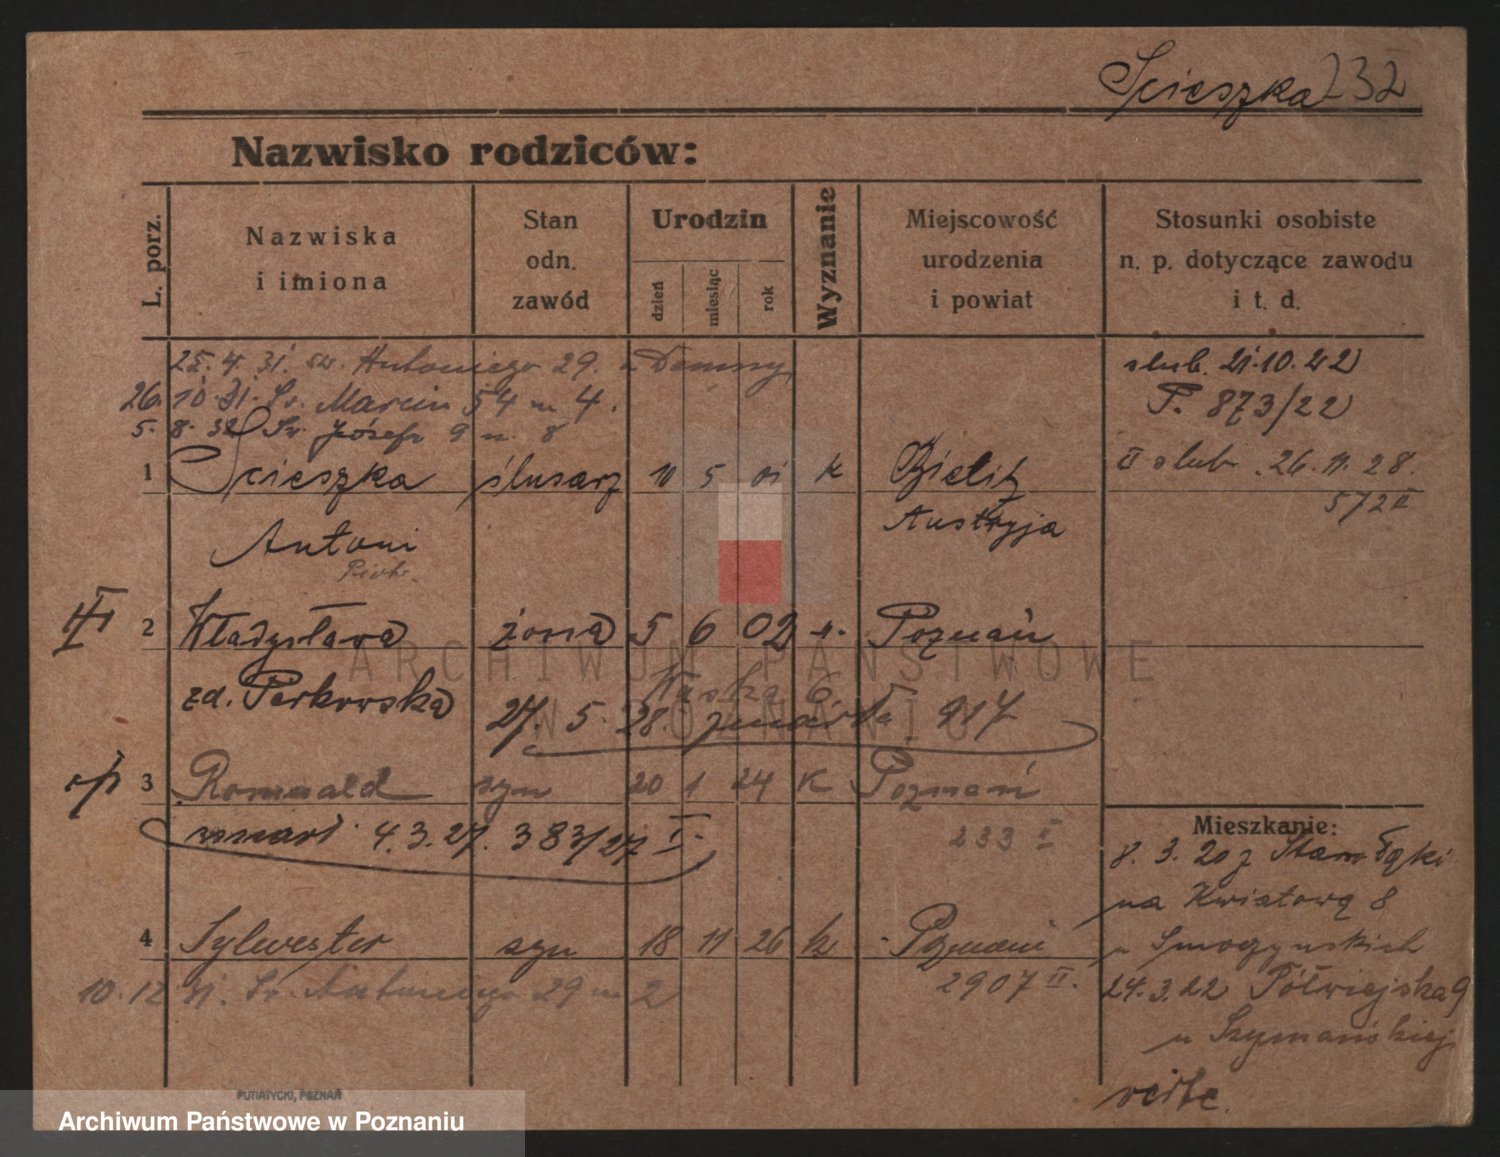 Ścieszka 232
Nazwisko rodziców:
L. porz.
Nazwiska
i imiona
Stan
odn.
zawód
Urodzin
dzień
miesiąc
rok
Wyznanie
Miejscowość
urodzenia
i powiat
Stosunki osobiste
n. p. dotyczące zawodu
i t. d.
25. 4. 31. św. Antoniego 29. u
26. 10. 31. Św. Marcin 54 m 4.
5. 8. 32 Św. Józefa 9 m. 8
ślub. 21.10.22
P. 873/22
II ślub. 26. 11. 28.
572 II
1 Ścieszka ślusarz 10 5 01 k Bielitz
Antoni Austryja
Piotr.
II 2 Władysława żona 5 6 02 k. Poznań
zd. Perkowska
27. 5. 28. zmarła 917
3 Romuald syn 20 1 24 K Poznań
zmarł 4. 3. 27. 383/27 I.
233 I
4 Sylwester syn 18 11 26 k Poznań
2907 II.
10. 12 31. Św. Antoniego 29 m 2
Mieszkanie:
8. 3. 20 z Starołęki
na Kwiatową 8
u Smoczyńskich
24.3.22 Półwiejska 9
u Szymańskiej
PUTIATYCKI, POZNAŃ
ARCHIWUM PAŃSTWOWE
W POZNANIU
Archiwum Państwowe w Poznaniu